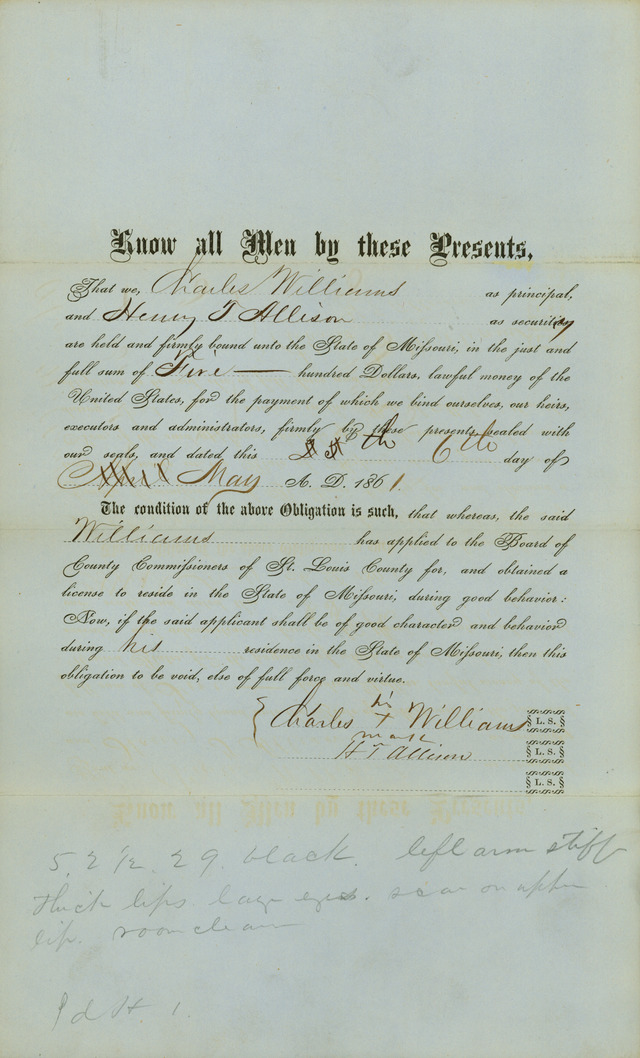 Know all Men by these Presents,
That we, Charles Williams as principal,
and Henry T Allison as security
are held and firmly bound unto the State of Missouri, in the just and
full sum of Five hundred Dollars, lawful money of the
United States, for the payment of which we bind ourselves, our heirs,
executors and administrators, firmly by these presents, sealed with
our seals, and dated this 6th day of
May A. D. 1861.
The condition of the above Obligation is such, that whereas, the said
Williams has applied to the Board of
County Commissioners of St. Louis County for, and obtained a
license to reside in the State of Missouri, during good behavior:
Now, if the said applicant shall be of good character and behavior
during his residence in the State of Missouri, then this
obligation to be void, else of full force and virtue.
his
Charles + Williams L. S.
mark
H T Allison L. S.
L. S.
5. 2 1/2. 29. black. left arm stiff
thick lips. large eyes. scar on upper
lip.
Pd st. 1.